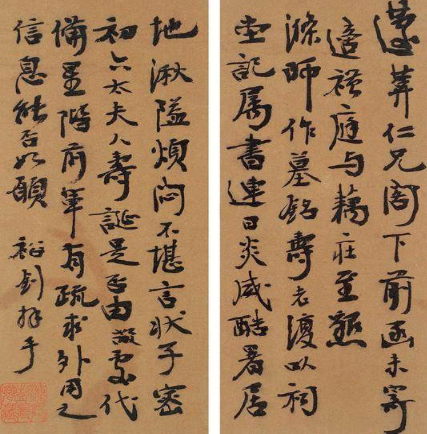 蓮葊仁兄閣下前函未寄
適祿庭与藕莊至懇
滌師作墓銘壽老復以祠
堂記属書連日炎威酷暑居
地湫隘煩悶不堪言狀子密
初六太夫人壽誕是否由敝處代
備星階前輩有疏求外用之
信息能否如願 裕釗拜手